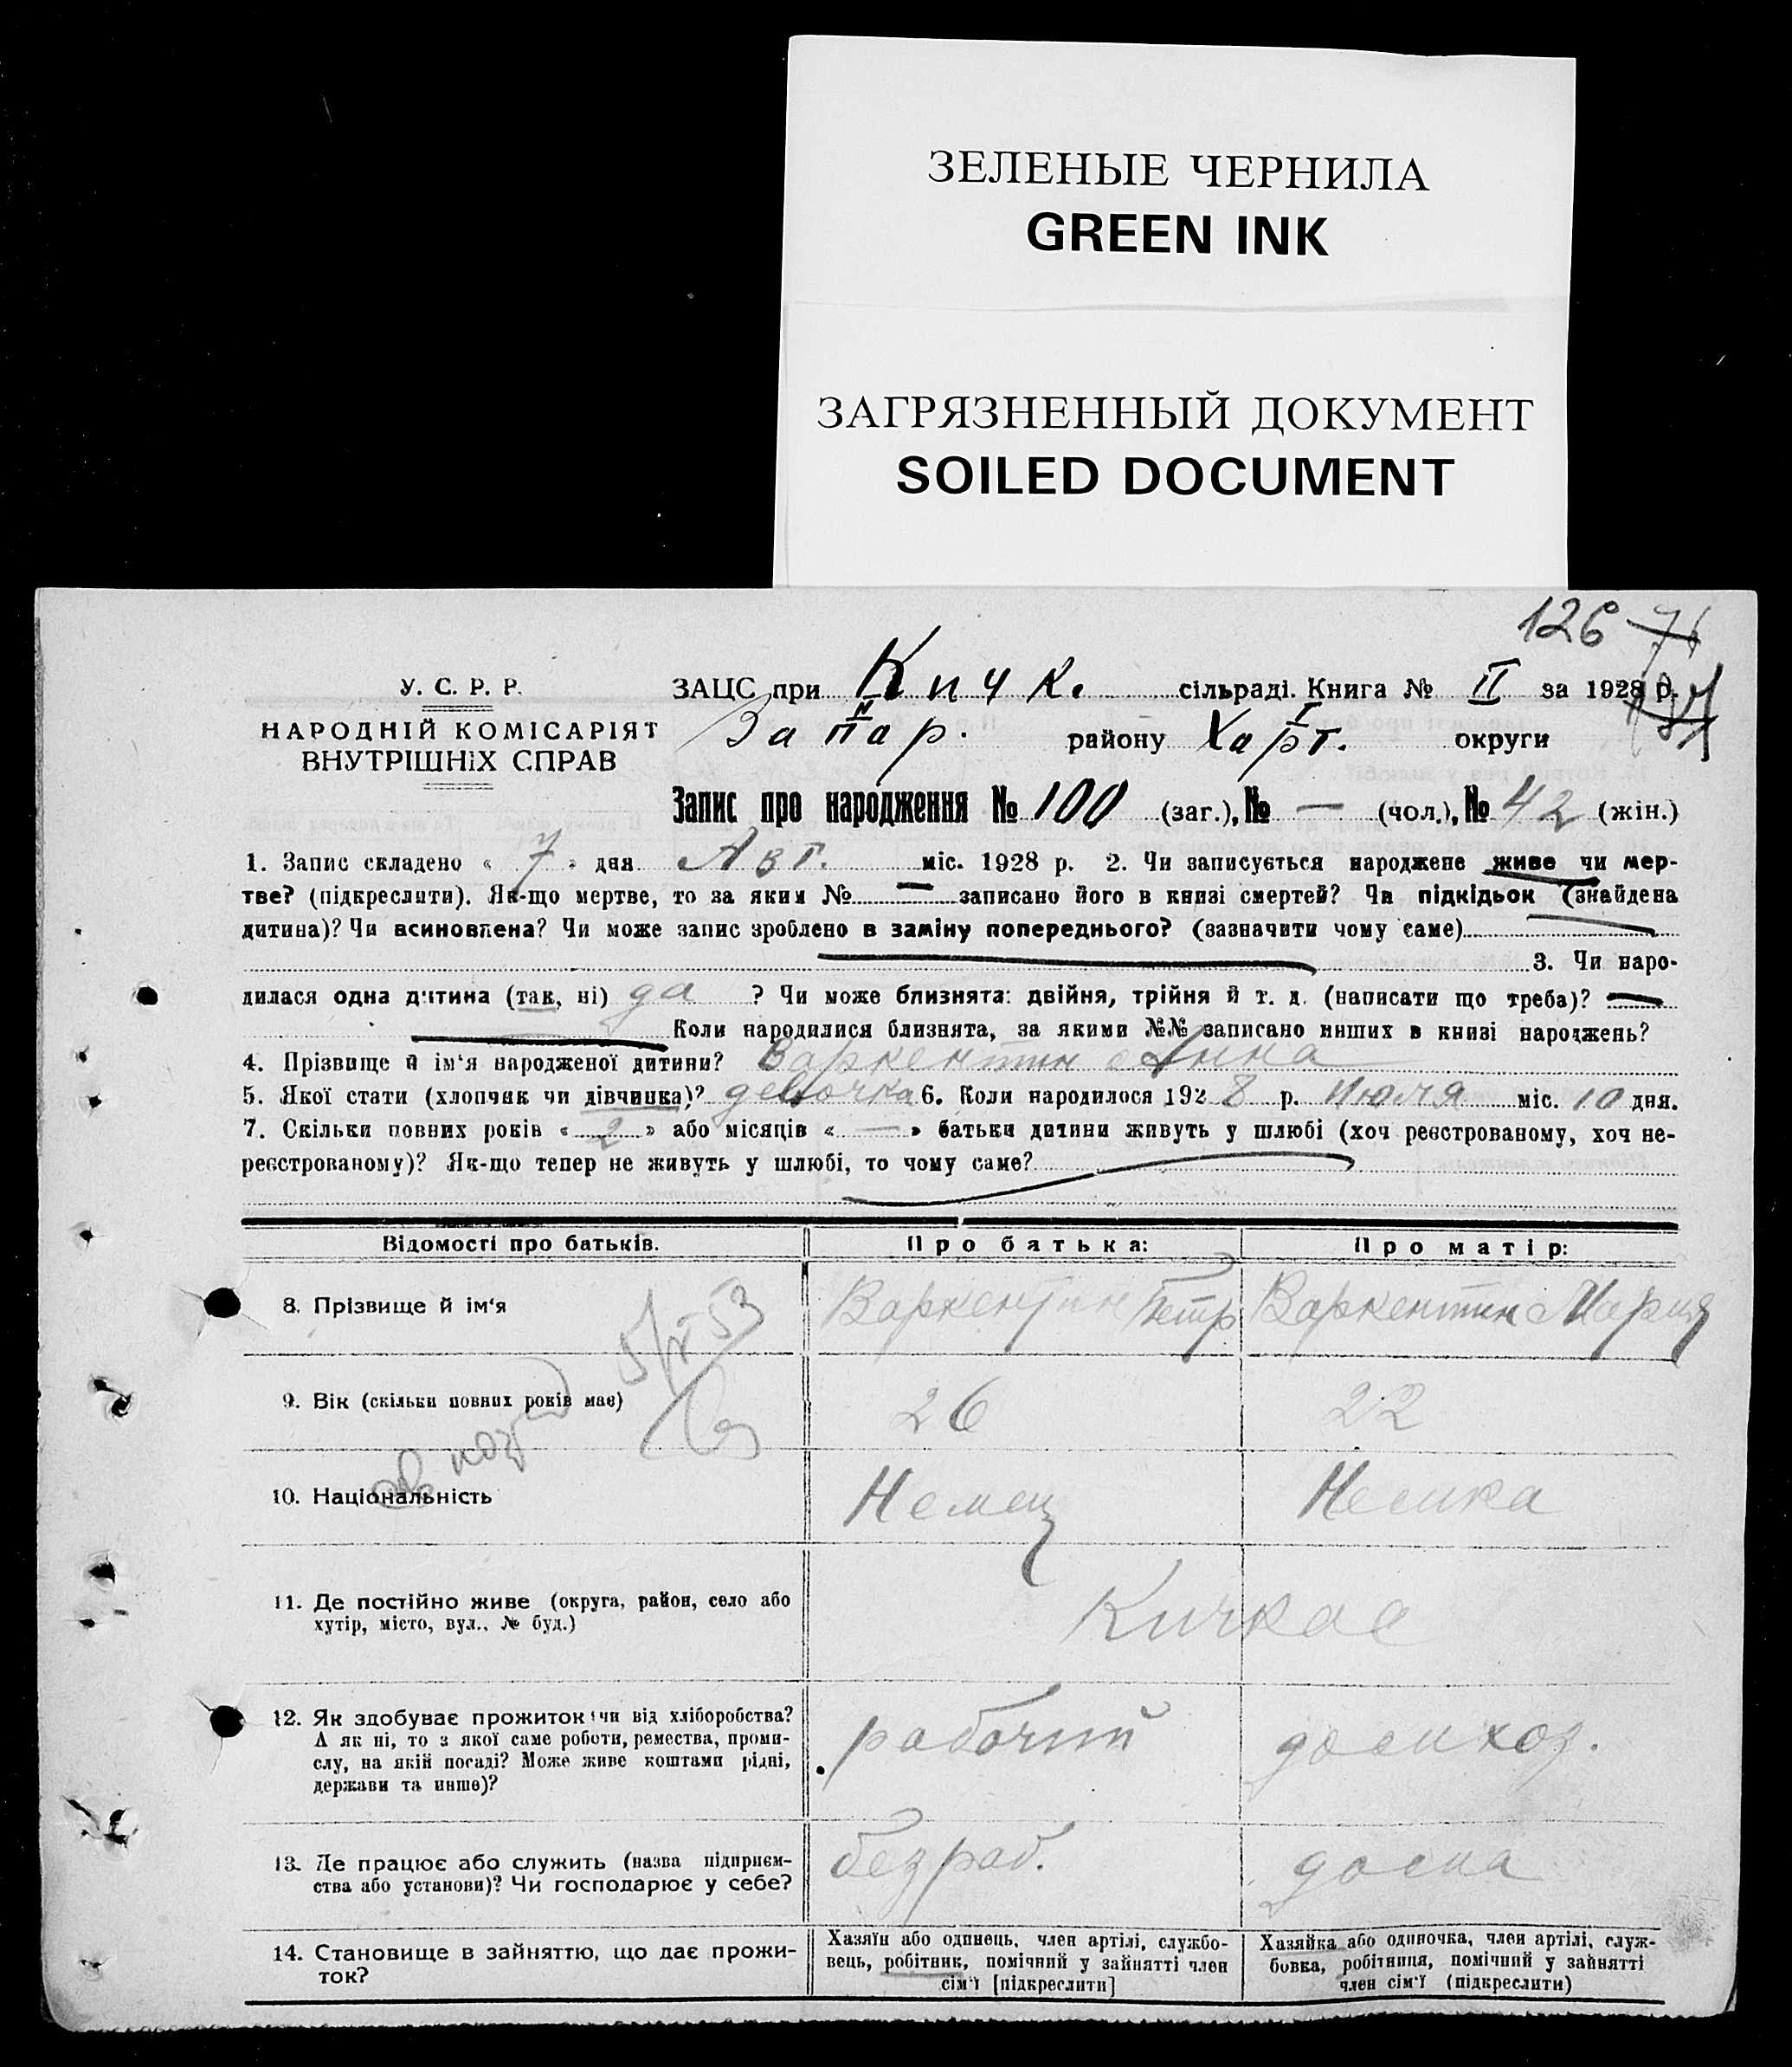 ЗЕЛЕНЫЕ ЧЕРНИЛА
GREEN INK
ЗАГРЯЗНЕННЫЙ ДОКУМЕНТ
SOILED DOCUMENT
126 71
У. С. Р. Р.
НАРОДНІЙ КОМІСАРІЯТ
ВНУТРІШНІХ СПРАВ
ЗАЦС при Кичк. сільраді. Книга № II за 1928 р.
Запар. району Харт. округи
Запис про народження № 100 (заг.), № — (чол.), № 42 (жін.)
1. Запис складено « 7 » дня Авг. міс. 1928 р. 2. Чи записується народжене живе чи мер-
тве? (підкреслити). Як-що мертве, то за яким № — записано його в книзі смертей? Чи підкідьок (знайдена
дитина)? Чи всиновлена? Чи може запис зроблено в заміну попереднього? (зазначити чому саме)
3. Чи наро-
дилася одна дитина (так, ні) да ? Чи може близнята: двійня, трійня й т. д. (написати що треба)? —
Коли народилися близнята, за якими №№ записано инших в книзі народжень?
4. Прізвище й ім'я народженої дитини? Варкентин Анна
5. Якої стати (хлопчик чи дівчинка)? девочка 6. Коли народилося 1928 р. Июля міс. 10 дня.
7. Скільки повних років « 2 » або місяців « — » батьки дитини живуть у шлюбі (хоч реєстрованому, хоч не-
реєстрованому)? Як-що тепер не живуть у шлюбі, то чому саме?
Відомості про батьків. Про батька: Про матір:
8. Прізвище й ім'я Варкентин Петр Варкентин Мария
5/X 53
9. Вік (скільки повних років має) 26 22
10. Національність Немец Немка
11. Де постійно живе (округа, район, село або
хутір, місто, вул., № буд.) Кичкас
12. Як здобуває прожиток: чи від хліборобства?
А як ні, то з якої саме роботи, ремества, проми-
слу, на якій посаді? Може живе коштами рідні,
держави та инше)? рабочий домихоз.
13. Де працює або служить (назва підприєм-
ства або установи)? Чи господарює у себе? безраб. дома
14. Становище в зайняттю, що дає прожи-
ток?
Хазяїн або одинець, член артілі, службо-
вець, робітник, помічний у зайнятті член
сім'ї [підкреслити]
Хазяйка або одиночка, член артілі, служ-
бовка, робітниця, помічний у зайнятті
член сім'ї (підкреслити)